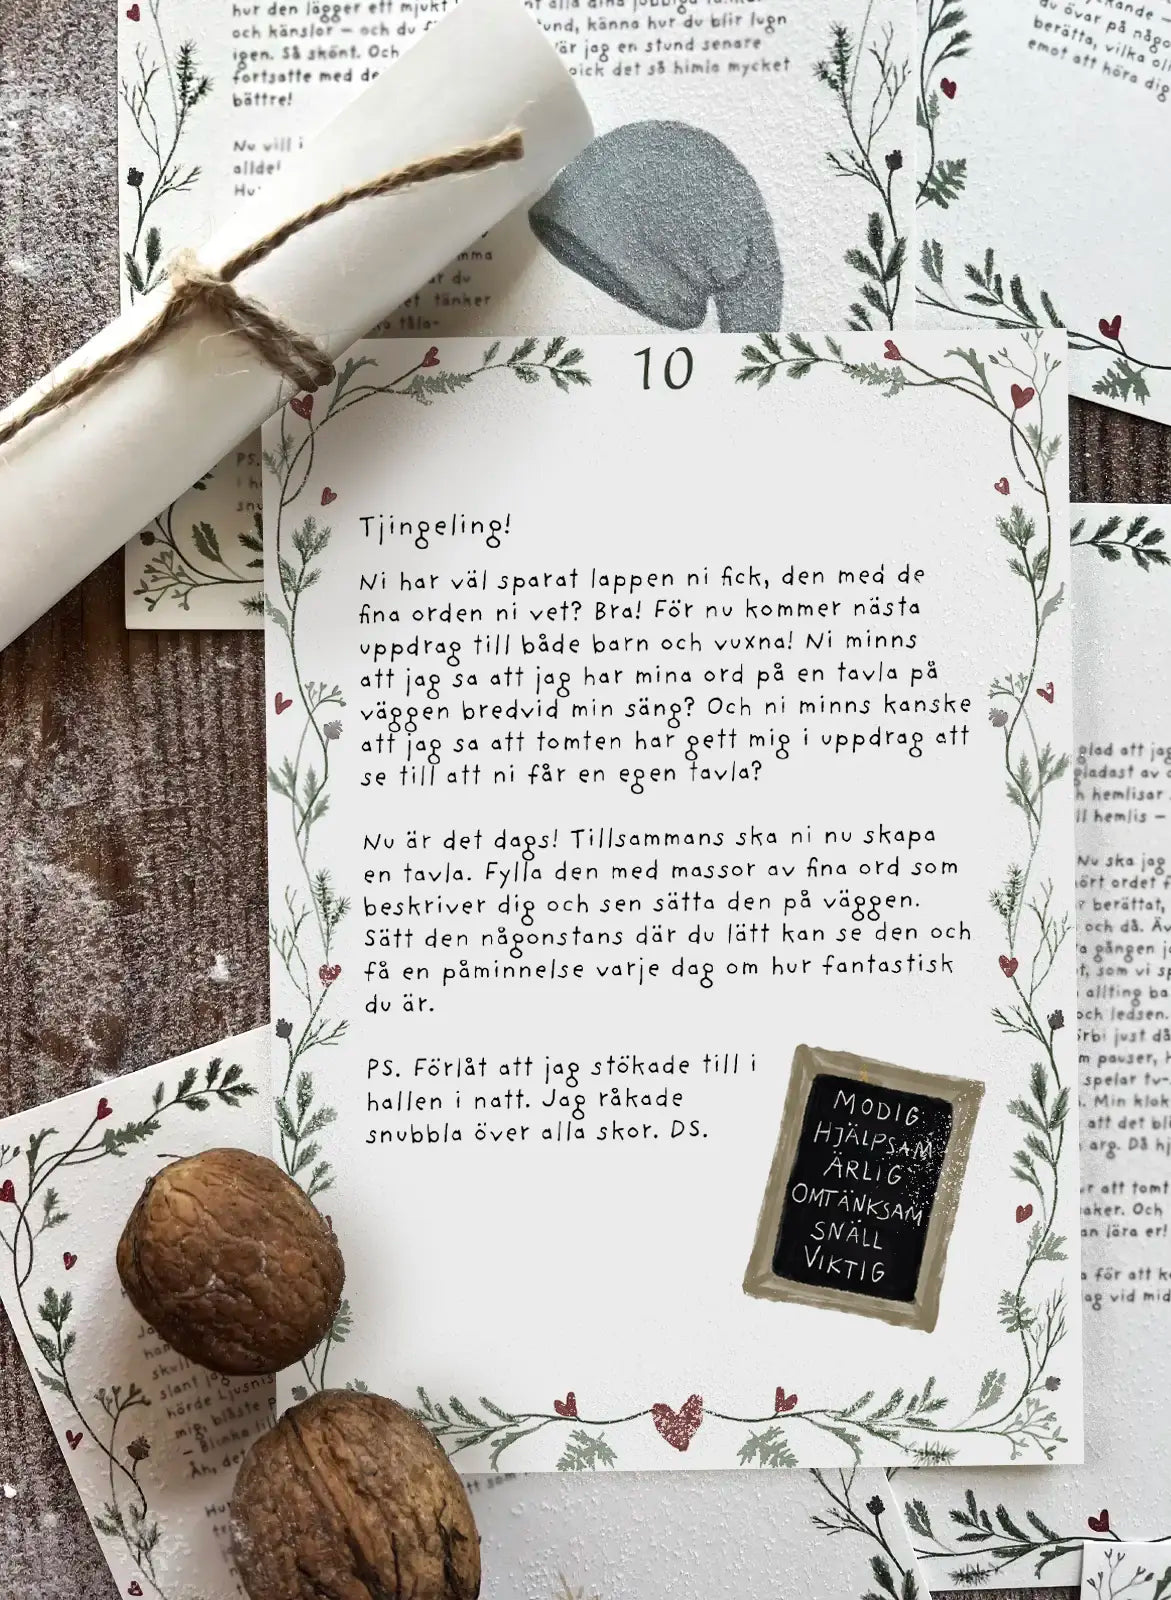 hur den lägger ett mjukt
och känslor – och du
igen. Så skönt. Och
fortsatte med de
bättre!
Nu vill
alla dina jobbiga
känna hur du blir lugn
jag en stund senare
det så himla mycket
du övar på
berätta, vilka
emot att höra dig
tänker
PS.
10
Tjingeling!
Ni har väl sparat lappen ni fick, den med de
fina orden ni vet? Bra! För nu kommer nästa
uppdrag till både barn och vuxna! Ni minns
att jag sa att jag har mina ord på en tavla på
väggen bredvid min säng? Och ni minns kanske
att jag sa att tomten har gett mig i uppdrag att
se till att ni får en egen tavla?
Nu är det dags! Tillsammans ska ni nu skapa
en tavla. Fylla den med massor av fina ord som
beskriver dig och sen sätta den på väggen.
Sätt den någonstans där du lätt kan se den och
få en påminnelse varje dag om hur fantastisk
du är.
PS. Förlåt att jag stökade till i
hallen i natt. Jag råkade
snubbla över alla skor. DS.
MODIG
HJÄLPSAM
ÄRLIG
OMTÄNKSAM
SNÄLL
VIKTIG
glad att jag
gladast av
hemlisar
hemlis –
Nu ska jag
hört ordet
berättat,
och då.
gången
som vi
allting
och ledsen.
just då
pauser,
spelar tv-
Min
att det
arg. Då
att
saker. Och
kan lära er!
för att
jag vid
slant jag
hörde
mig, blåste
– Blinka
Åh, det